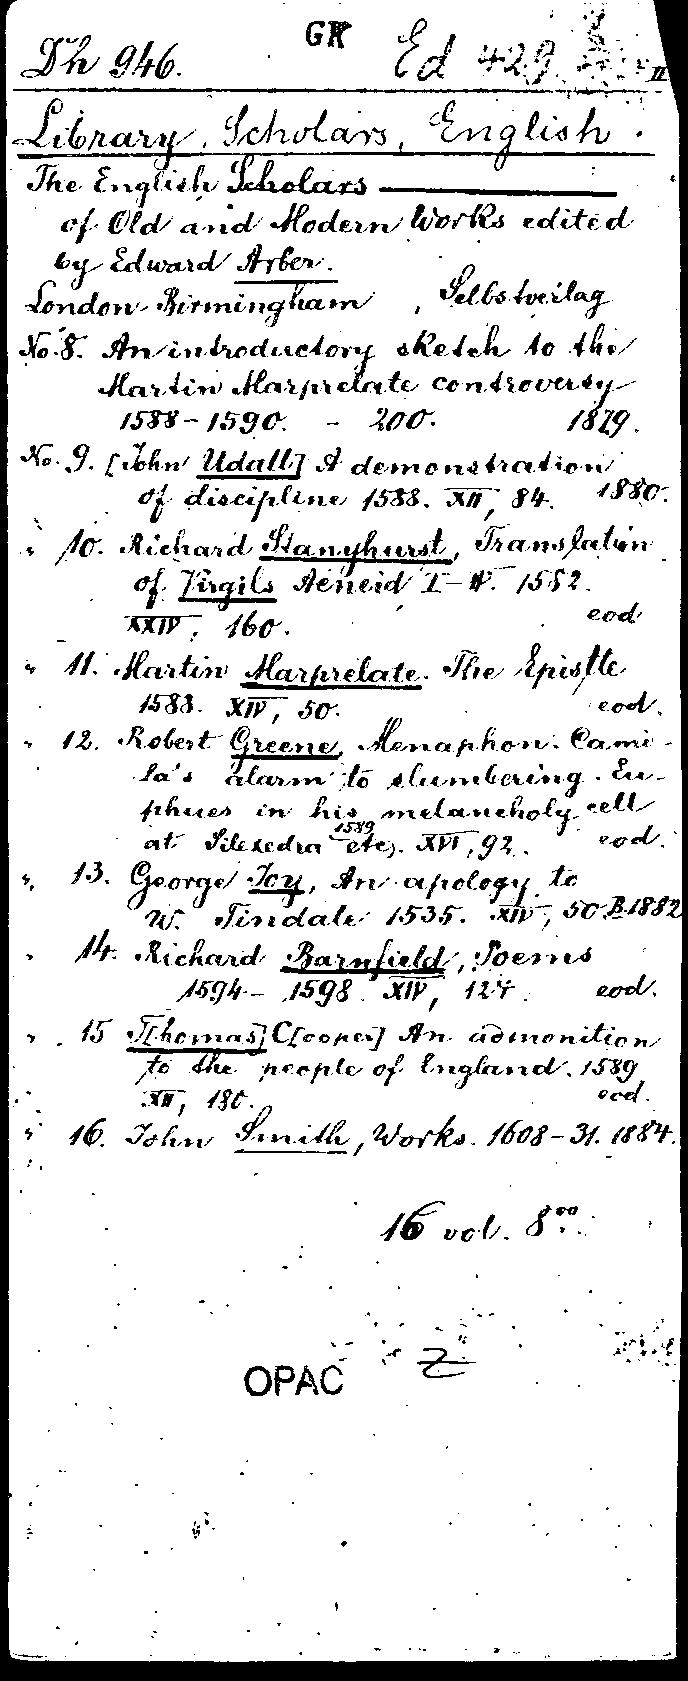 GK
Dh 946. Ed 429. II
Library, Scholars, English.
The English Scholars
of Old and Modern Works edited
by Edward Arber.
London-Birmingham, Selbstverlag
No. 8. An introductory sketch to the
Martin Marprelate controversy
1588-1590. - 200. 1879.
No. 9. [John Udall] A demonstration
of discipline 1588. XII, 84. 1880.
" 10. Richard Stanyhurst, Translation
of Virgils Aeneid I-IV. 1582.
XXIV, 160. eod
" 11. Martin Marprelate. The Epistle
1588. XIV, 50. eod.
" 12. Robert Greene, Menaphon. Cami-
la's alarm to slumbering. Eu-
phues in his melancholy cell
at Silexedra 1589 etc. XVI, 92. eod.
" 13. George Joy, An apology to
W. Tindale 1535. XIV, 50 B. 1882
" 14. Richard Barnfield, Poems
1594-1598. XIV, 124. eod.
" 15 T[homas] C[ooper] An admonition
to the people of England. 1589
XII, 180. eod.
" 16. John Smith, Works. 1608-31. 1884.
16 vol. 8°°.
OPAC Z